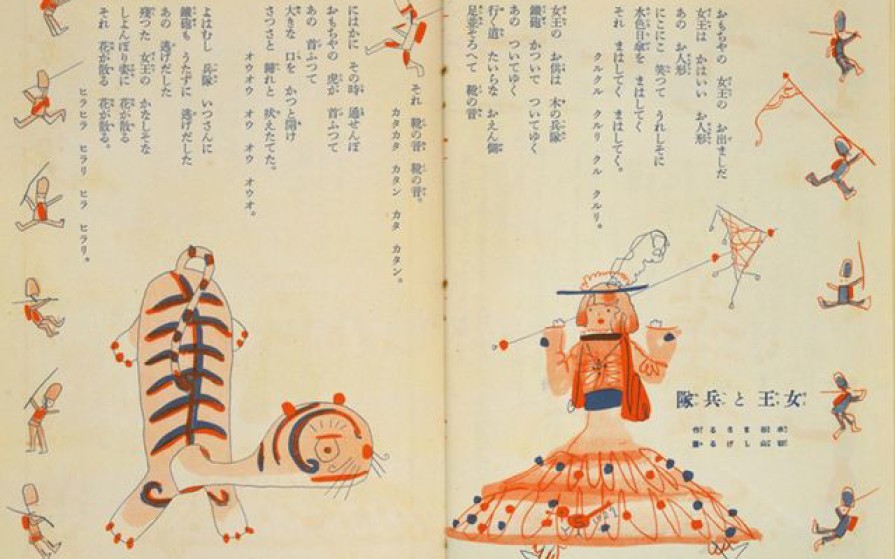 女王と兵隊
おもちやの 女王の お出ましだ
女王は かはいい お人形
あの お人形
にこにこ 笑つて うれしそに
水色日傘を まはしてく
それ まはしてく まはしてく。
クルクル クルリ クル クルリ。
女王の お供は 木の兵隊
鐵砲 かついで ついてゆく
あの ついてゆく
行く道 たいらな おえん側
足並そろへて 靴の音
それ 靴の音 靴の音。
カタカタ カタン カタ カタン。
にはかに その時 通せんぼ
おもちやの 虎が 首ふつて
あの 首ふつて
大きな 口を かつと開け
さつさと 歸れと 吠えたてた。
オウオウ オウ オウ オウオ。
よはむし 兵隊 いつさんに
鐵砲も うたずに 逃げだした
あの 逃げだした
殘つた 女王の かなしそな
しよんぼり姿に 花が散る
それ 花が散る 花が散る。
ヒラヒラ ヒラリ ヒラ ヒラリ。